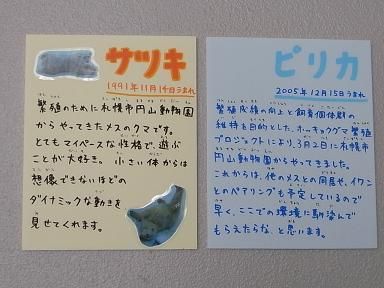 サツキ
1991年11月14日うまれ
繁殖のために札幌市円山動物園
からやってきたメスのクマです。
とてもマイペースな性格で、遊ぶ
ことが大好き。小さい体からは
想像できないほどの
ダイナミックな動きを
見せてくれます。
ピリカ
2005年12月15日うまれ
繁殖成績の向上と飼育個体群の
維持を目的とした、ホッキョクグマ繁殖
プロジェクトにより、3月2日に札幌市
円山動物園からやってきました。
これからは、他のメスとの同居や、イワン
とのペアリングも予定しているので
早く、ここでの環境に馴染んで
もらえたらな、と思います。